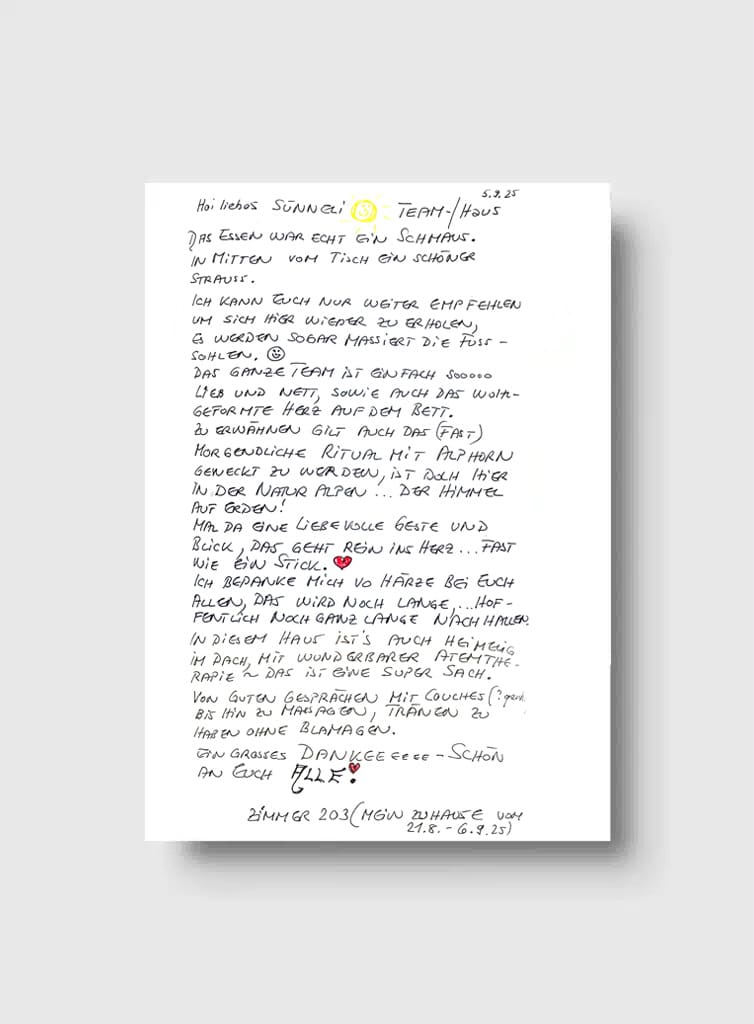 5.9.25
Hoi liebes SÜNNELI TEAM-/HAUS
DAS ESSEN WAR ECHT EIN SCHMAUS.
IN MITTEN VOM TISCH EIN SCHÖNER
STRAUSS.
ICH KANN EUCH NUR WEITER EMPFEHLEN
UM SICH HIER WIEDER ZU ERHOLEN,
ES WERDEN SOGAR MASSIERT DIE FUSS-
SOHLEN.
DAS GANZE TEAM IST EINFACH SOOOOO
LIEB UND NETT, SOWIE AUCH DAS WOHL-
GEFORMTE HERZ AUF DEM BETT.
ZU ERWÄHNEN GILT AUCH DAS (FAST)
MORGENDLICHE RITUAL MIT ALPHORN
GEWECKT ZU WERDEN, IST DOCH HIER
IN DER NATUR ALPEN ... DER HIMMEL
AUF ERDEN!
MAL DA EINE LIEBEVOLLE GESTE UND
BLICK, DAS GEHT REIN INS HERZ ... FAST
WIE EIN STICK.
ICH BEDANKE MICH VO HÄRZE BEI EUCH
ALLEN, DAS WIRD NOCH LANGE, ... HOF-
FENTLICH NOCH GANZ LANGE NACHHALLEN.
IN DIESEM HAUS IST'S AUCH HEIMELIG
IM DACH, MIT WUNDERBARER ATEMTHE-
RAPIE ~ DAS IST EINE SUPER SACH.
VON GUTEN GESPRÄCHEN MIT COUCHES (?
BIS HIN ZU MASSAGEN, TRÄNEN ZU
HABEN OHNE BLAMAGEN.
EIN GROSSES DANKEEEEEE-SCHÖN
AN EUCH ALLE!
ZIMMER 203 (MEIN ZUHAUSE VOM
21.8. - 6.9.25)